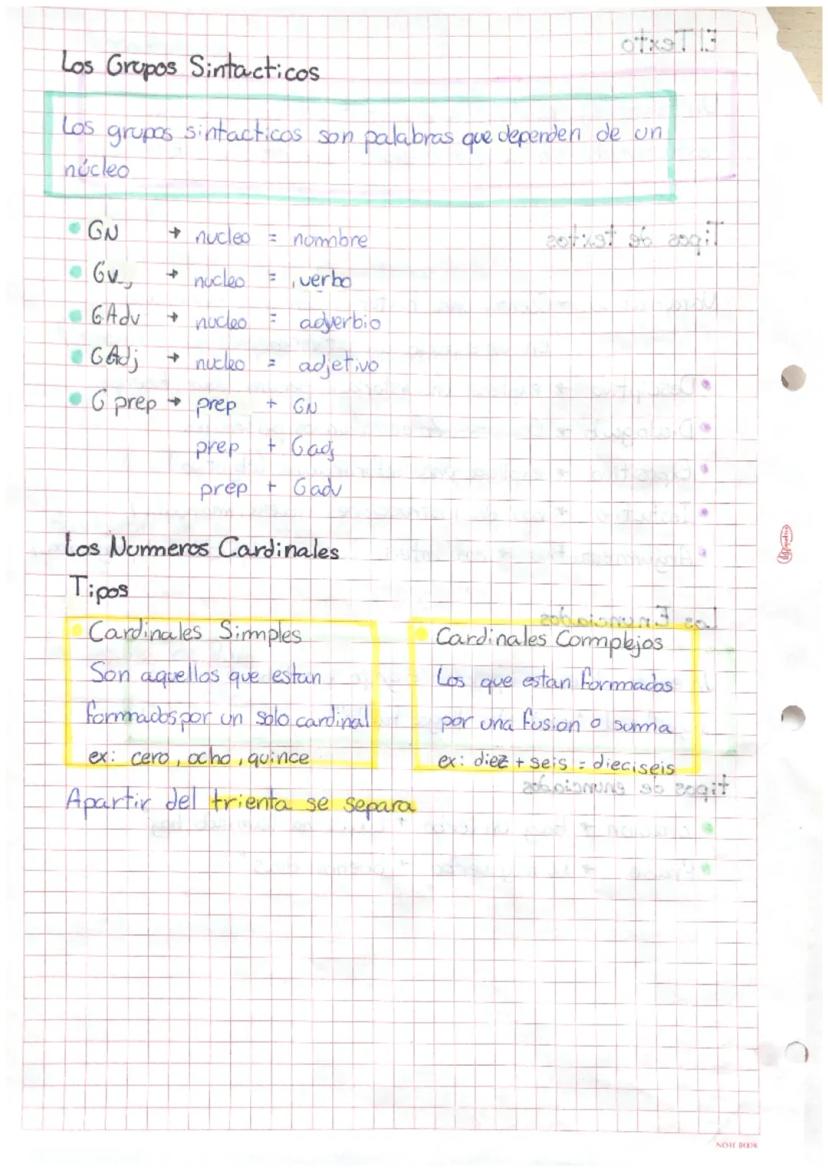 Los Grupos Sintacticos
Los grupos sintacticos son palabras que dependen de un
núcleo
GN → nucleo = nombre
Gv → nucleo = verbo
GAdv → nucleo = adverbio
GAdj → nucleo = adjetivo
G prep → prep + GN
prep + Gadj
prep + Gadv
Los Nummeros Cardinales
Tipos
Cardinales Simples
Son aquellos que estan
formados por un solo cardinal
ex: cero, ocho, quince
Cardinales Commplejos
Los que estan formmados
por una fusion o summa
ex: diez + seis = dieciseis
Apartir del trienta se separa
NOTE BOOK